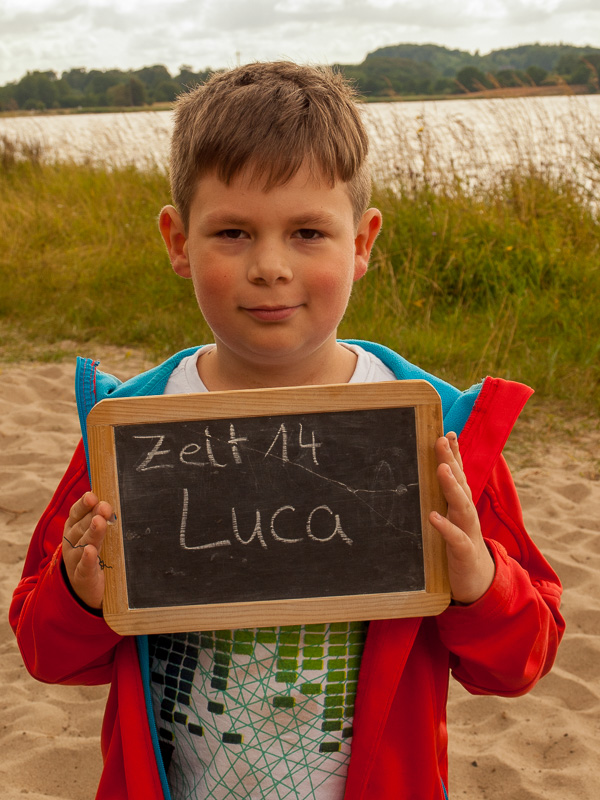 Zelt 14
Luca